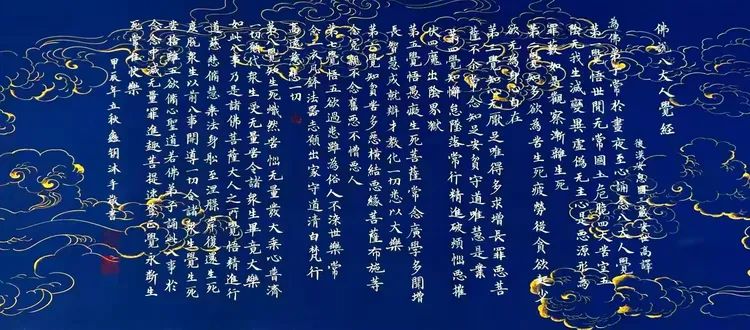 佛說八大人覺經
後漢安息國三藏安世高譯
為佛弟子常於晝夜至心誦念八大人覺
第一覺悟世間无常國土危脆四大苦空五
陰无我生滅變異虛偽无主心是惡源形為
罪藪如是觀察漸離生死
第二覺知多欲為苦生死疲勞從貪欲起少
欲无為身心自在
第三覺知心无厭足唯得多求增長罪惡菩
薩不爾常念知足安貧守道唯慧是業
第四覺知懈怠墜落常行精進破煩惱惡摧
伏四魔出陰界獄
第五覺悟愚癡生死菩薩常念廣學多聞增
長智慧成就辯才教化一切悉以大樂
第六覺知貧苦多怨橫結惡緣菩薩布施等
念冤親不念舊惡不憎惡人
第七覺悟五欲過患雖為俗人不染世樂常
念三衣瓦缽法器志願出家守道清白梵行
高遠慈悲一切
第八覺知生死熾然苦惱无量發大乘心普濟
一切願代眾生受无量苦令諸眾生畢竟大樂
如此八事乃是諸佛菩薩大人之所覺悟精進行
道慈悲修慧乘法身船至涅槃岸復還生死
度脫眾生以前八事開導一切令諸眾生覺生死
苦捨離五欲修心聖道若佛弟子誦此八事於
念念中滅无量罪進趣菩提速登正覺永斷生
死常住快樂
甲辰年立秋 沐手敬書